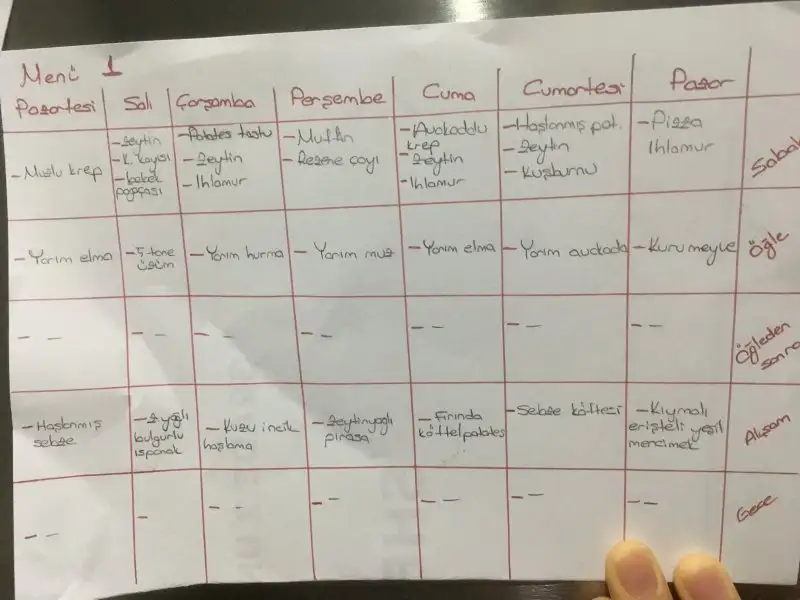 Menü 1
Pazartesi Salı Çarşamba Perşembe Cuma Cumartesi Pazar
Sabah
- Muzlu krep
- Zeytin
- K. kayısı
- bebek
poğçası
- Patates tostu
- Zeytin
- Ihlamur
- Muffin
- Rezene çayı
- Avokaddu
krep
- Zeytin
- Ihlamur
- Haşlanmış pat.
- Zeytin
- Kuşburnu
- Pizza
Ihlamur
Öğle
- Yarım elma
- 5 tane
üzüm
- Yarım hurma
- Yarım muz
- Yarım elma
- Yarım avokado
- Kuru meyve
Öğleden
sonra
- -
- -
- -
- -
- -
- -
- -
Akşam
- Haşlanmış
sebze
- Z. yağlı
bulgurlu
ıspanak
- Kuzu incik
haşlama
- Zeytinyağlı
pırasa
- Fırında
köfte/patates
- Sebze köftesi
- Kıymalı
erişteli yeşil
mercimek
Gece
- -
-
- -
- -
- -
- -
- -